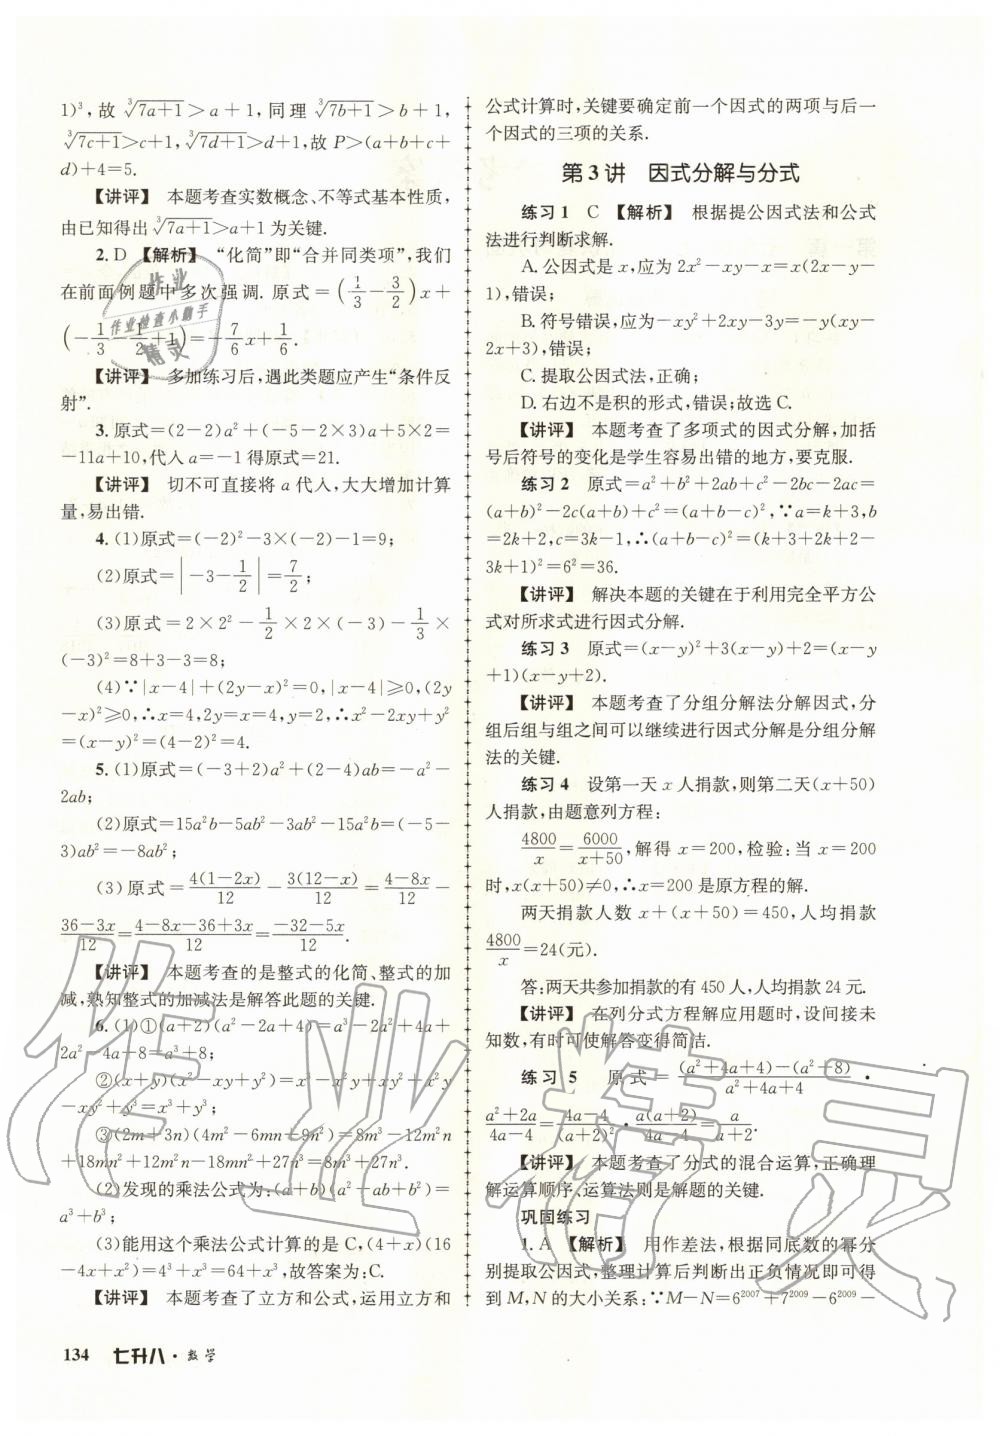 1)³,故 ∛(7a+1)>a+1,同理 ∛(7b+1)>b+1,
∛(7c+1)>c+1,∛(7d+1)>d+1,故 P>(a+b+c+
d)+4=5.
【讲评】 本题考查实数概念、不等式基本性质,
由已知得出 ∛(7a+1)>a+1 为关键.
2. D 【解析】 “化简”即“合并同类项”,我们
在前面例题中多次强调. 原式=(1/3-3/2)x+
(-1/3-1/2+1)=-7/6x+1/6.
【讲评】 多加练习后,遇此类题应产生“条件反
射”.
3. 原式=(2-2)a²+(-5-2×3)a+5×2=
-11a+10,代入 a=-1 得原式=21.
【讲评】 切不可直接将 a 代入,大大增加计算
量,易出错.
4. (1)原式=(-2)²-3×(-2)-1=9;
(2)原式=|-3-1/2|=7/2;
(3)原式=2×2²-1/2×2×(-3)-1/3×
(-3)²=8+3-3=8;
(4)∵|x-4|+(2y-x)²=0,|x-4|≥0,(2y
-x)²≥0,∴x=4,2y=x=4,y=2,∴x²-2xy+y²
=(x-y)²=(4-2)²=4.
5. (1)原式=(-3+2)a²+(2-4)ab=-a²-
2ab;
(2)原式=15a²b-5ab²-3ab²-15a²b=(-5-
3)ab²=-8ab²;
(3)原式=4(1-2x)/12-3(12-x)/12=4-8x/12-
36-3x/12=4-8x-36+3x/12=-32-5x/12.
【讲评】 本题考查的是整式的化简、整式的加
减,熟知整式的加减法是解答此题的关键.
6. (1)①(a+2)(a²-2a+4)=a³-2a²+4a+
2a²-4a+8=a³+8;
②(x+y)(x²-xy+y²)=x³-x²y+xy²+x²y
-xy²+y³=x³+y³;
③(2m+3n)(4m²-6mn+9n²)=8m³-12m²n
+18mn²+12m²n-18mn²+27n³=8m³+27n³.
(2)发现的乘法公式为:(a+b)(a²-ab+b²)=
a³+b³;
(3)能用这个乘法公式计算的是 C,(4+x)(16
-4x+x²)=4³+x³=64+x³,故答案为:C.
【讲评】 本题考查了立方和公式,运用立方和
134 七升八·数学
公式计算时,关键要确定前一个因式的两项与后一
个因式的三项的关系.
第 3 讲 因式分解与分式
练习 1 C 【解析】 根据提公因式法和公式
法进行判断求解.
A. 公因式是 x,应为 2x²-xy-x=x(2x-y-
1),错误;
B. 符号错误,应为-xy²+2xy-3y=-y(xy-
2x+3),错误;
C. 提取公因式法,正确;
D. 右边不是积的形式,错误;故选 C.
【讲评】 本题考查了多项式的因式分解,加括
号后符号的变化是学生容易出错的地方,要克服.
练习 2 原式=a²+b²+2ab+c²-2bc-2ac=
(a+b)²-2c(a+b)+c²=(a+b-c)²,∵a=k+3,b
=2k+2,c=3k-1,∴(a+b-c)²=(k+3+2k+2-
3k+1)²=6²=36.
【讲评】 解决本题的关键在于利用完全平方公
式对所求式进行因式分解.
练习 3 原式=(x-y)²+3(x-y)+2=(x-y
+1)(x-y+2).
【讲评】 本题考查了分组分解法分解因式,分
组后组与组之间可以继续进行因式分解是分组分解
法的关键.
练习 4 设第一天 x 人捐款,则第二天(x+50)
人捐款,由题意列方程:
4800/x=6000/x+50,解得 x=200,检验:当 x=200
时,x(x+50)≠0,∴x=200 是原方程的解.
两天捐款人数 x+(x+50)=450,人均捐款
4800/x=24(元).
答:两天共参加捐款的有 450 人,人均捐款 24 元.
【讲评】 在列分式方程解应用题时,设间接未
知数,有时可使解答变得简洁.
练习 5 原式=(a²+4a+4)-(a²+8)/a²+4a+4·
a²+2a/4a-4=4a-4/(a+2)²·a(a+2)/4a-4=a/a+2.
【讲评】 本题考查了分式的混合运算,正确理
解运算顺序、运算法则是解题的关键.
巩固练习
1. A 【解析】 用作差法,根据同底数的幂分
别提取公因式,整理计算后判断出正负情况即可得
到 M,N 的大小关系:∵M-N=6²⁰⁰⁷+7²⁰⁰⁹-6²⁰⁰⁹-
作业
作业检查小助手
精灵
作业精灵